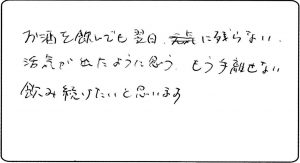 お酒を飲んでも翌日、に残らない、
活気が出たように思う、もう手離せない
飲み続けたいと思います